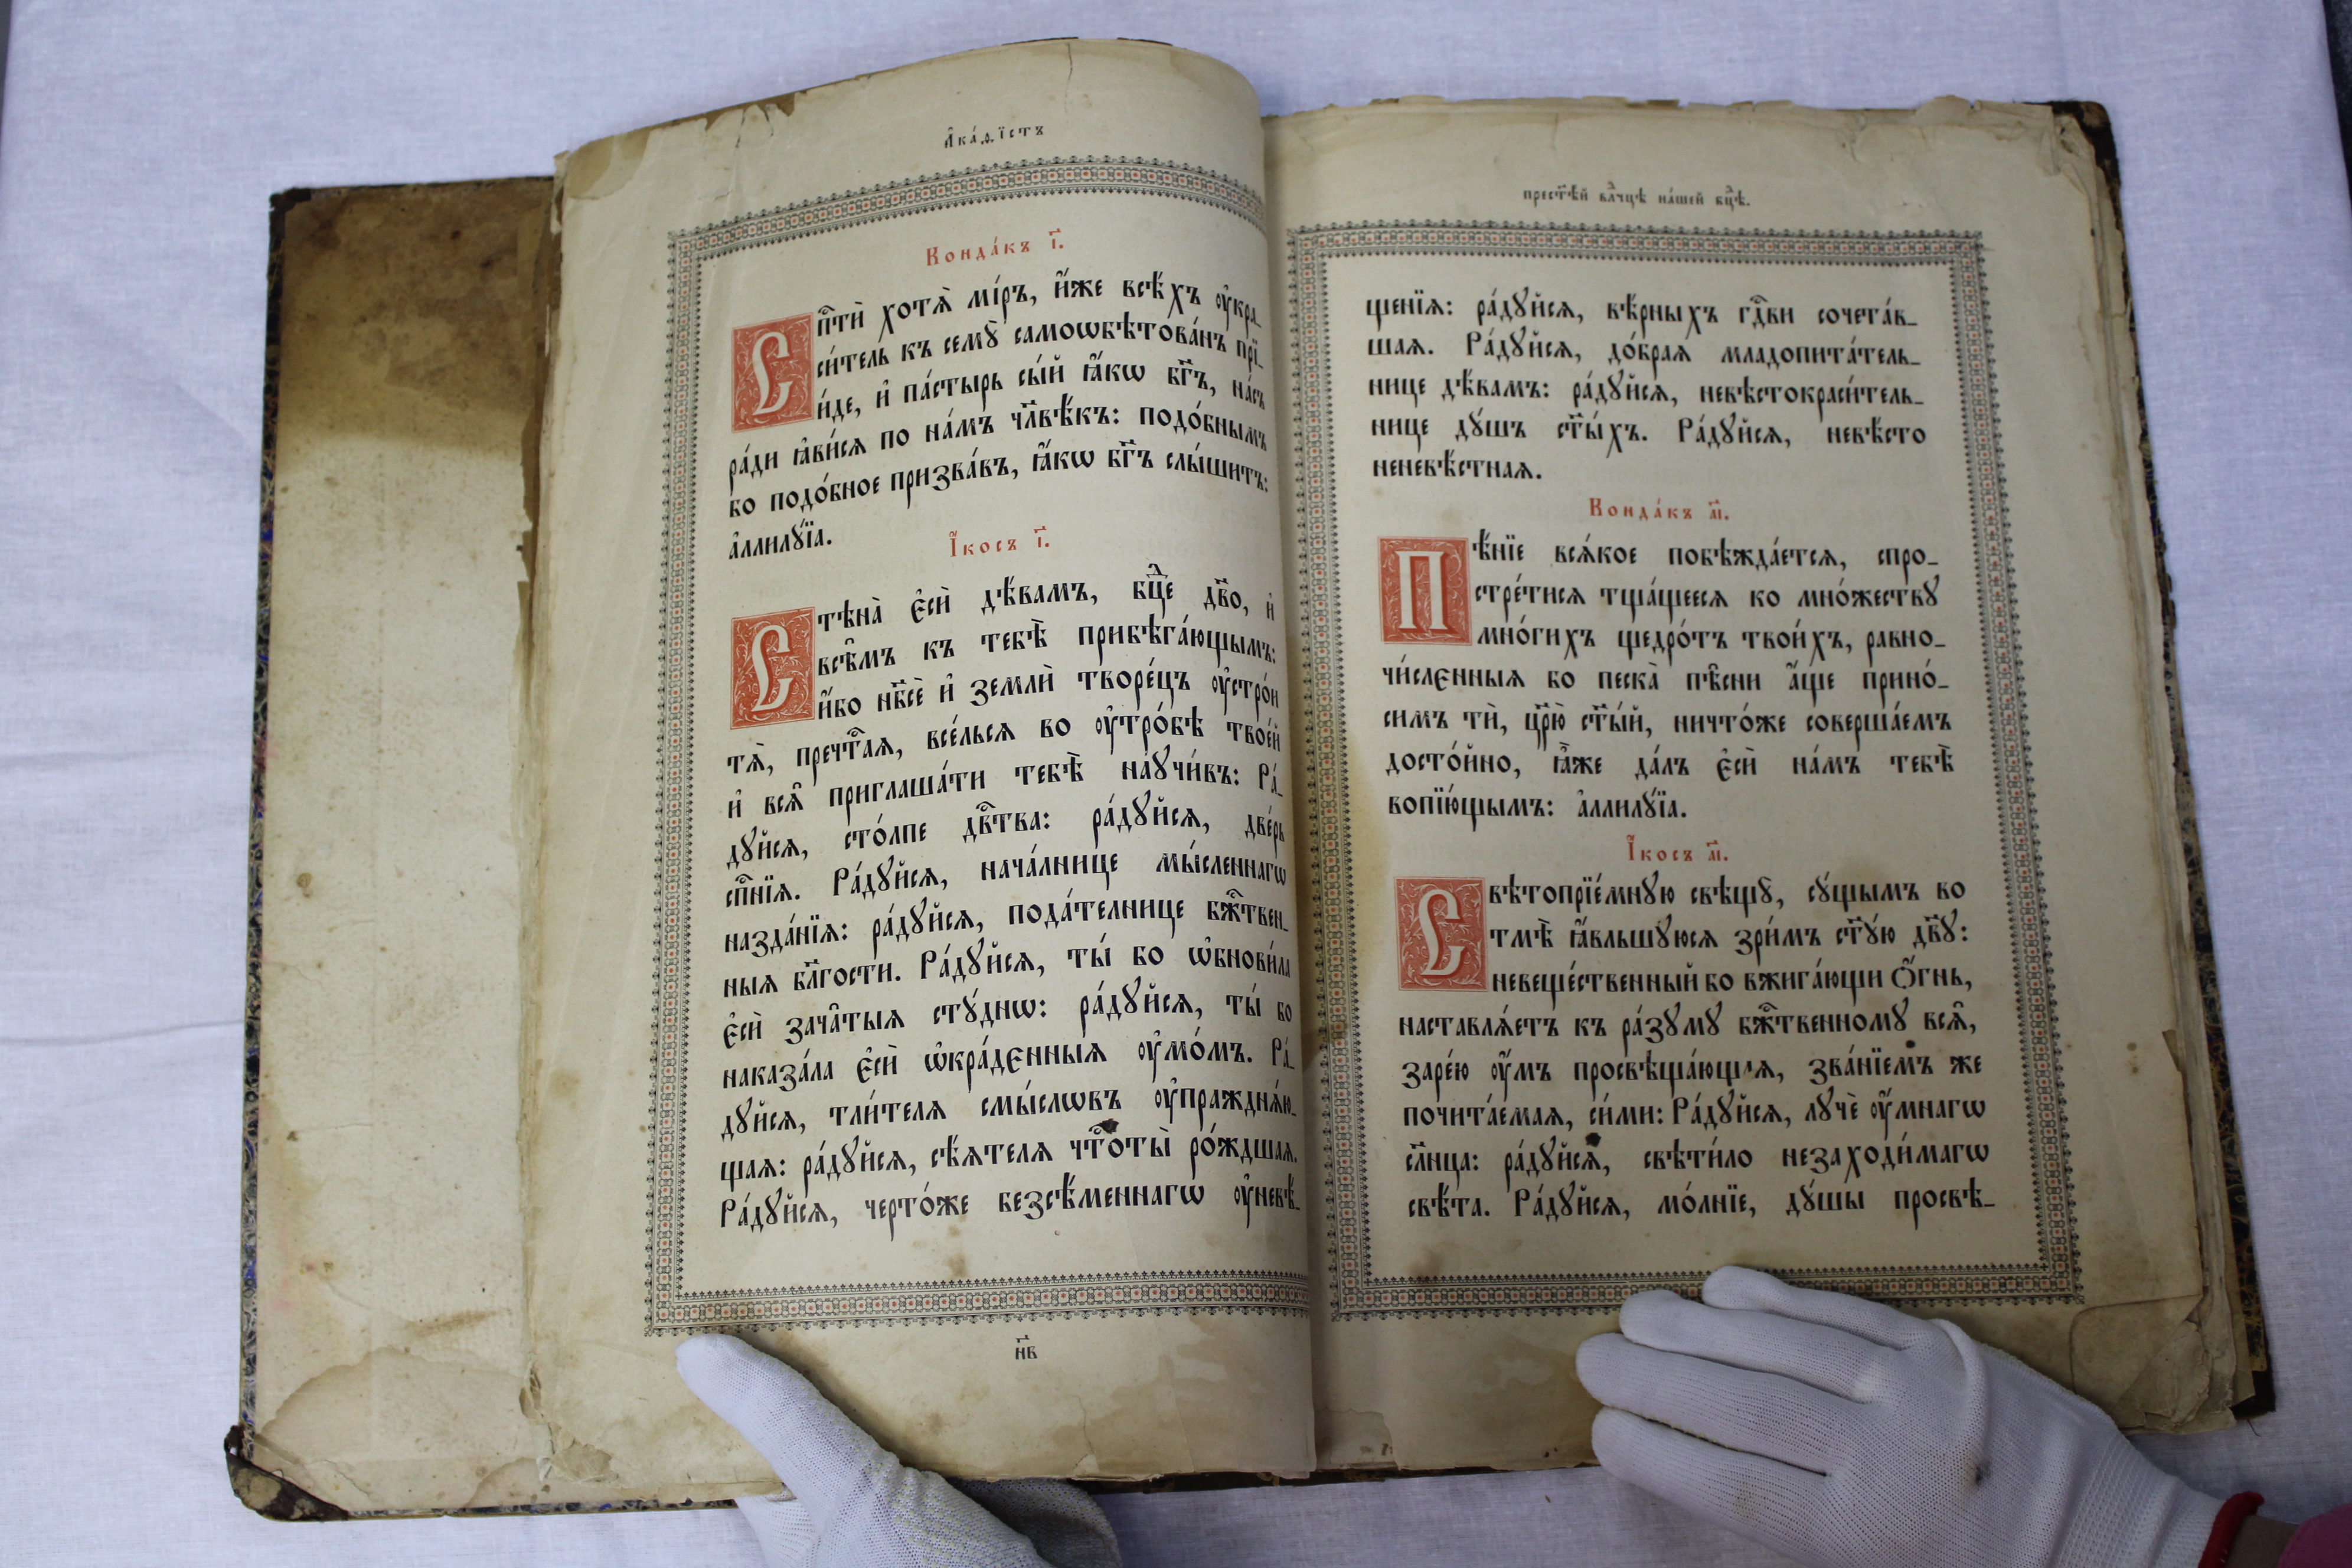 А҆ка́ѳїстъ
Конда́къ і҃.
Сп҃стѝ хотѧ̀ мі́ръ, и҆́же всѣ́хъ ᲂу҆кра_
си́тель къ семꙋ̀ самоѡбѣтова́нъ прї_
и́де, и҆ па́стырь сы́й ꙗ҆́кѡ бг҃ъ, на́съ
ра́ди ꙗ҆ви́сѧ по на́мъ чл҃вѣ́къ: подо́бнымъ
бо подо́бное призва́въ, ꙗ҆́кѡ бг҃ъ слы́шитъ:
а҆ллилꙋ́їа.
І҆́косъ і҃.
Стѣна̀ є҆сѝ дѣ́вамъ, бцⷣе дв҃о, и҆
всѣ̑мъ къ тебѣ̀ прибѣга́ющымъ:
и҆́бо нб҃сѐ и҆ землѝ творе́цъ ᲂу҆стро́и
тѧ̀, пречⷭ҇таѧ, все́льсѧ во ᲂу҆тро́бѣ твое́й
и҆ всѧ̑ приглаша́ти тебѣ̀ наꙋчи́въ: Ра́_
дꙋйсѧ, сто́лпе дв҃ства: ра́дꙋйсѧ, две́рь
сп҃се́нїѧ. Ра́дꙋйсѧ, нача́лнице мы́сленнагѡ
назда́нїѧ: ра́дꙋйсѧ, пода́телнице бж҃ⷭ҇твен_
ныѧ бл҃гости. Ра́дꙋйсѧ, ты́ бо ѡ҆бнови́ла
є҆сѝ зача̑тыѧ стꙋ́днѡ: ра́дꙋйсѧ, ты́ бо
наказа́ла є҆сѝ ѡ҆кра́дєнныѧ ᲂу҆мо́мъ. Ра́_
дꙋйсѧ, тли́телѧ смы́слѡвъ ᲂу҆праждня́ю_
щаѧ: ра́дꙋйсѧ, сѣ́ѧтелѧ чⷭ҇тоты̀ ро́ждшаѧ.
Ра́дꙋйсѧ, черто́же безсѣ́меннагѡ ᲂу҆невѣ́_
н҃в
прест҃ѣ́й влⷣчцѣ на́шей бцⷣѣ.
щенїѧ: ра́дꙋйсѧ, вѣ́рныхъ гдⷭ҇ви сочета́в_
шаѧ. Ра́дꙋйсѧ, до́браѧ младопита́тель_
нице дѣ́вамъ: ра́дꙋйсѧ, невѣстокраси́тель_
нице дꙋ́шъ ст҃ы́хъ. Ра́дꙋйсѧ, невѣ́сто
неневѣ́стнаѧ.
Конда́къ а҃і.
Пѣ́нїе всѧ́кое побѣжда́етсѧ, спро_
стре́тисѧ тща́щеесѧ ко мно́жествꙋ
мно́гихъ щедро́тъ твои́хъ, равно_
чи́слєнныѧ бо песка̀ пѣ̑сни а҆́ще прино́_
симъ тѝ, цр҃ю̀ ст҃ы́й, ничто́же соверша́емъ
досто́йно, ꙗ҆̀же да́лъ є҆сѝ на́мъ тебѣ̀
вопїю́щымъ: а҆ллилꙋ́їа.
І҆́косъ а҃і.
Свѣтопрїе́мнꙋю свѣщꙋ̀, сꙋ́щымъ во
тмѣ̀ ꙗ҆́вльшꙋюсѧ зри́мъ ст҃ꙋ́ю дв҃ꙋ:
невеще́ственный бо вжига́ющи ѻ҆́гнь,
наставлѧ́етъ къ ра́зꙋмꙋ бж҃ⷭ҇твенномꙋ всѧ̑,
заре́ю ᲂу҆́мъ просвѣща́ющаѧ, зва́нїемъ же
почита́емаѧ, си́ми: Ра́дꙋйсѧ, лꙋчѐ ᲂу҆́мнагѡ
сл҃нца: ра́дꙋйсѧ, свѣти́ло незаходи́магѡ
свѣ́та. Ра́дꙋйсѧ, мо́лнїе, дꙋ́шы просвѣ_